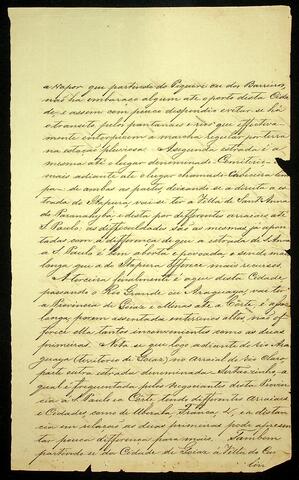 a vapor que partindo do Piquiri ou dos Barreiros,
não ha embaraço algum até o porto desta Cida
de, e assim com pouco dispendio evitar se há
o transito pelos pantanaes e rios que effectiva-
mente interpõem a marcha regular por terra
na estação pluviosa. A segunda estrada é a
mesma até o lugar denominado Cemiterio
mais adiante até o lugar chamado Cabeceira lim
pa: se ambas as partes, deixando se a direita a es
trada do Itapura, vai se ter á Villa de Sant'Anna
do Paranahyba e desta por differentes arraiaes até
S. Paulo: as difficuldades são as mesmas já apon
tadas com a differença de que a estrada de Anna
a S. Paulo é bem aberta e povoada, e sendo mais
longa que a do Itapura, offerece mais recursos.
A terceira finalmente é a que desta Cidade
passando o Rio Grande ou Araguaya, vai ter
a Provincia de Goiaz e d'alli até a Corte, é a mais
longa, porem assentada em terrenos altos, não of
ferece ella tantos inconvenientes como as duas
primeiras. Nota se que logo adiante do rio Ara
guaya (territorio de Goiaz) no Arraial do rio Claro,
parte outra estrada denominada Sertãozinho, a
qual é frequentada pelos negociantes desta Provin
cia á S. Paulo e a Corte, tendo differentes Arraiaes
e Cidades, como de Uberaba, Franca, &, e a distan
cia em relação as duas primeiras pode apresen
tar pouca differença para mais. Tambem
partindo se da Cidade de Goiaz á Villa do Cu